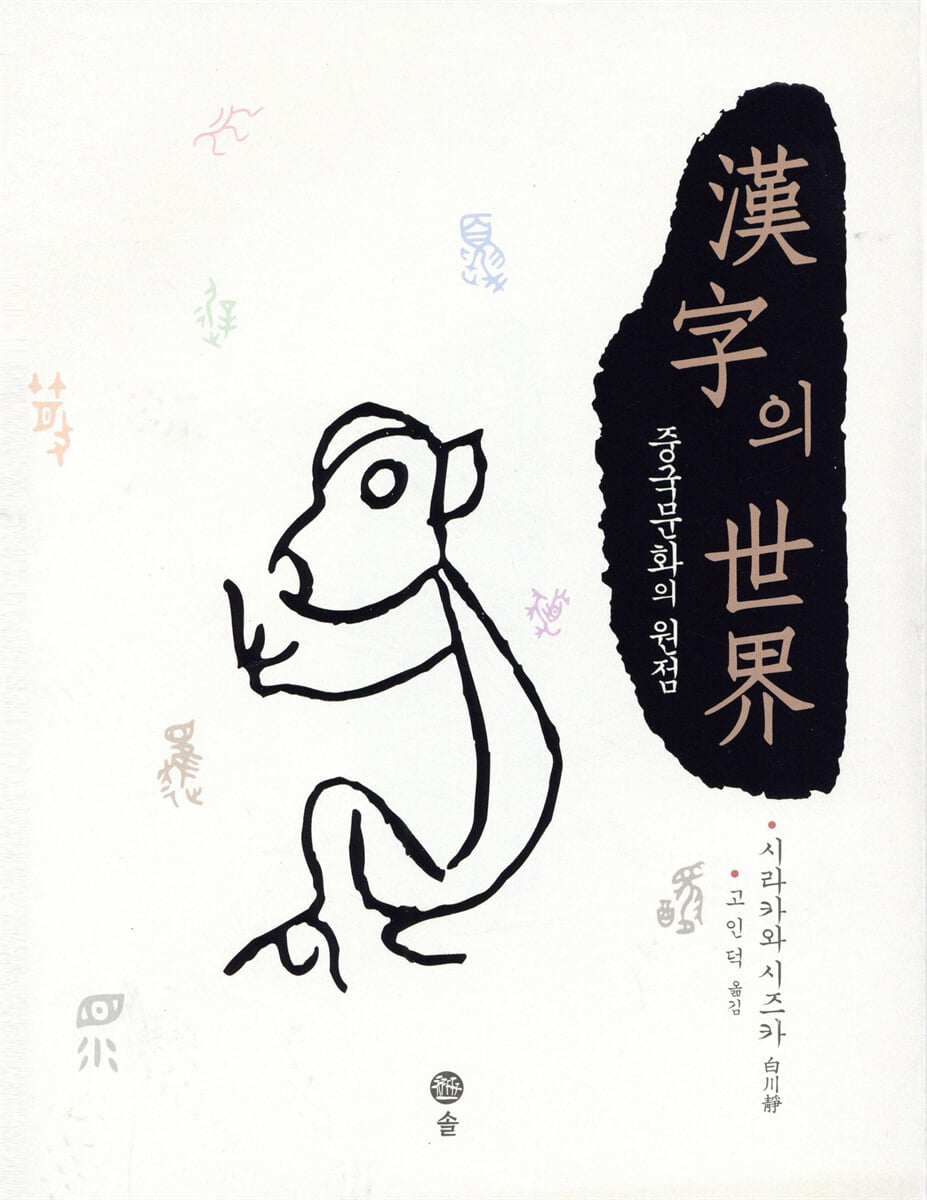 漢字의 世界
중국문화의 원점
시라카와 시즈카 白川靜
고인덕 옮김
솔